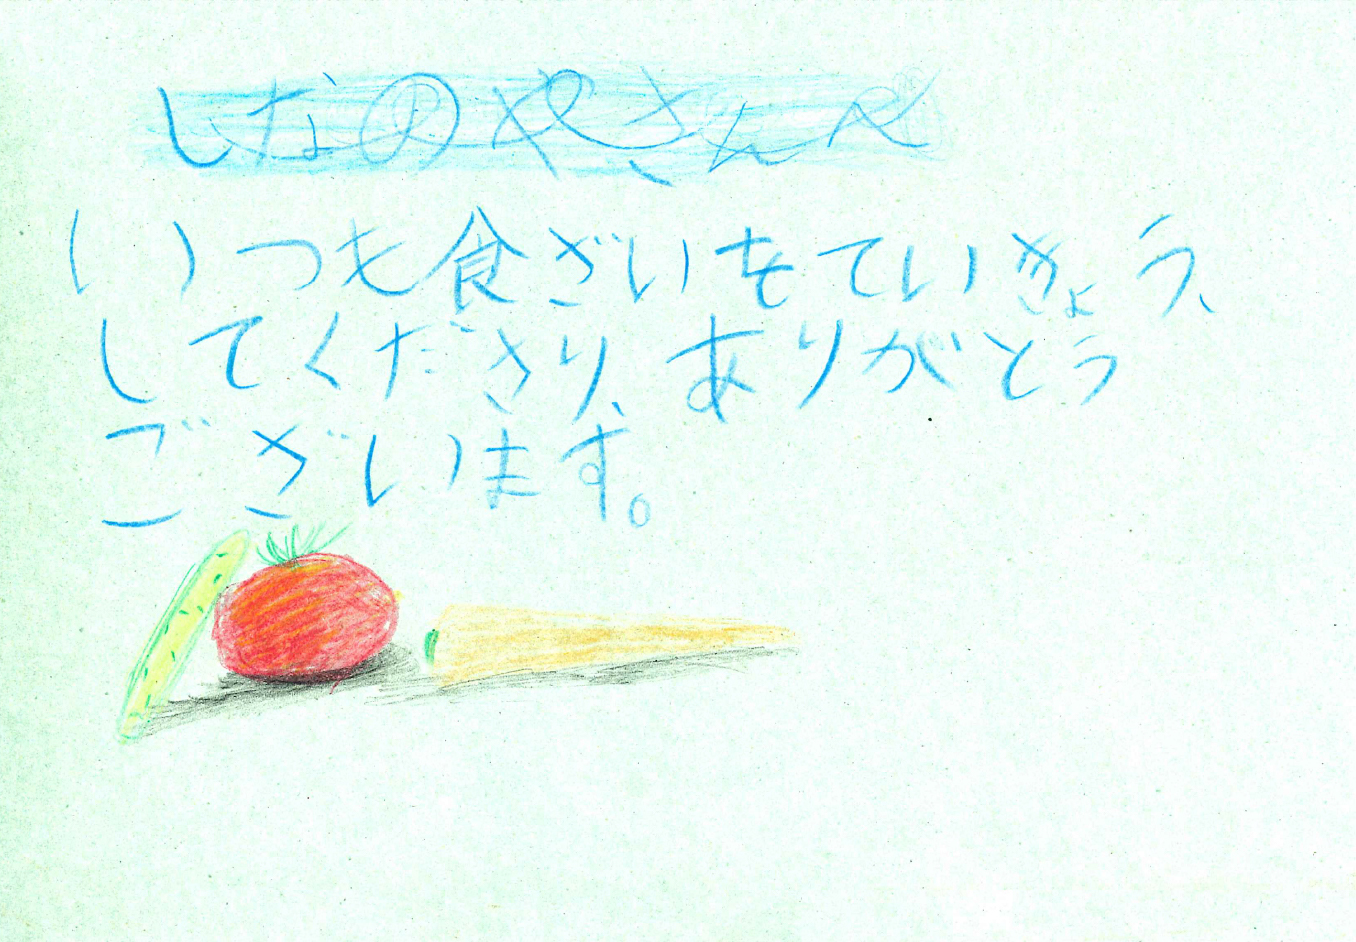 しなのやさんへ
いつも食ざいをていきょう、
してくださり、ありがとう
ございます。